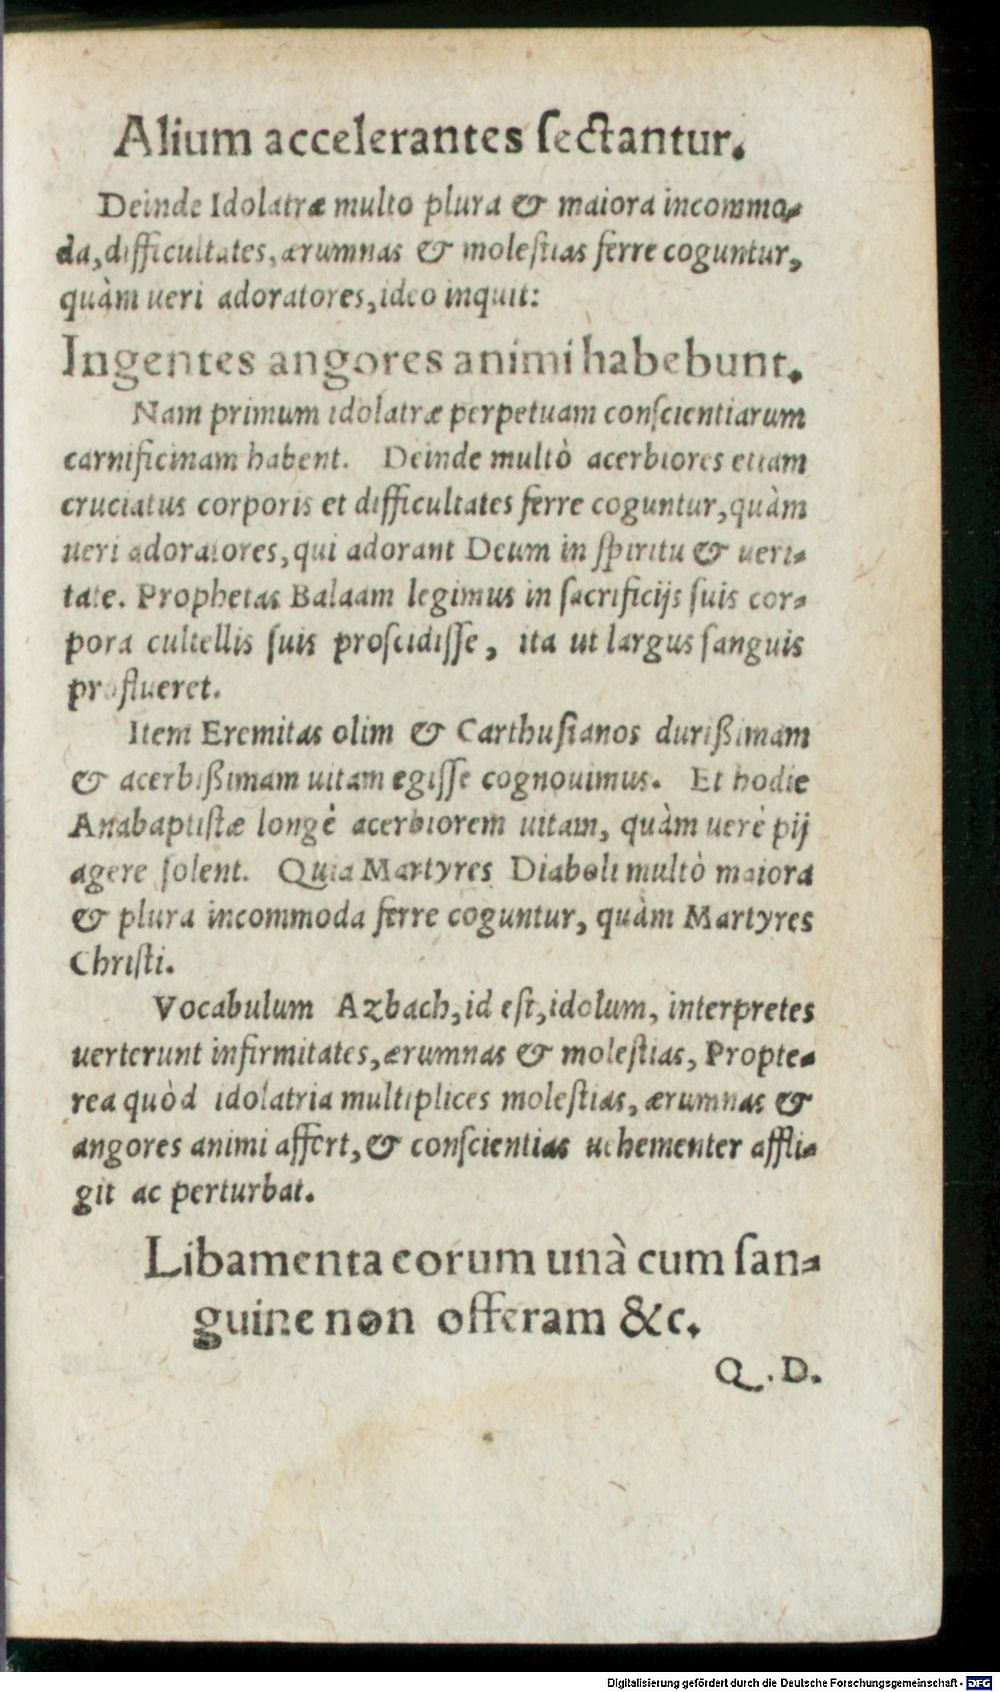 Alium accelerantes sectantur.
Deinde Idolatræ multo plura & maiora incommo⸗
da, difficultates, ærumnas & molestias ferre coguntur,
quàm ueri adoratores, ideo inquit:
Ingentes angores animi habebunt.
Nam primum idolatræ perpetuam conscientiarum
carnificinam habent. Deinde multò acerbiores etiam
cruciatus corporis et difficultates ferre coguntur, quàm
ueri adoratores, qui adorant Deum in spiritu & ueri⸗
tate. Prophetas Balaam legimus in sacrificijs suis cor⸗
pora cultellis suis proscidisse, ita ut largus sanguis
proflueret.
Item Eremitas olim & Carthusianos durißimam
& acerbißimam uitam egisse cognouimus. Et hodie
Anabaptistæ longè acerbiorem uitam, quàm uerè pij
agere solent. Quia Martyres Diaboli multò maiora
& plura incommoda ferre coguntur, quàm Martyres
Christi.
Vocabulum Azbach, id est, idolum, interpretes
uerterunt infirmitates, ærumnas & molestias, Propte⸗
rea quòd idolatria multiplices molestias, ærumnas &
angores animi affert, & conscientias uehementer affli⸗
git ac perturbat.
Libamenta eorum unà cum san⸗
guine non offeram &c.
Q. D.
Digitalisierung gefördert durch die Deutsche Forschungsgemeinschaft - DFG